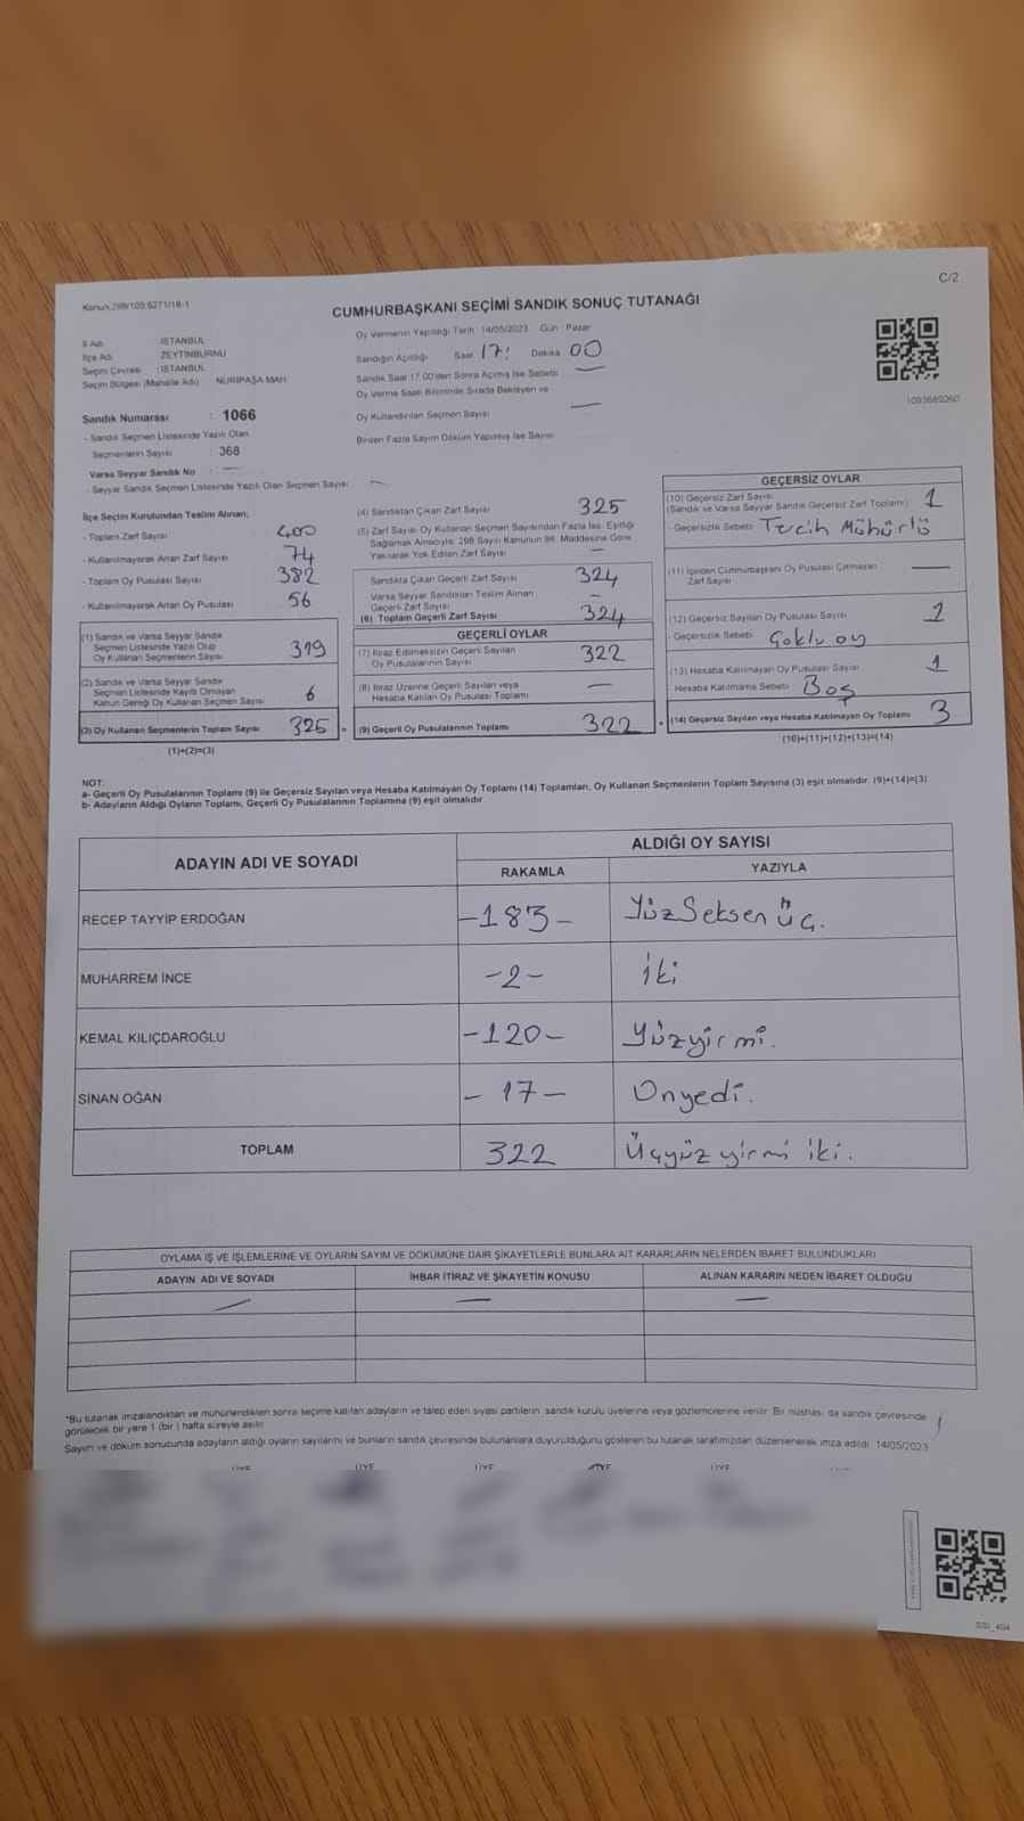 C/2
Kanun 298/105 6271/18-1
CUMHURBAŞKANI SEÇİMİ SANDIK SONUÇ TUTANAĞI
Oy Vermenin Yapıldığı Tarih 14/05/2023 Gün Pazar
İl Adı : İSTANBUL
İlçe Adı : ZEYTİNBURNU
Seçim Çevresi : İSTANBUL
Seçim Bölgesi (Mahalle Adı) NURİPAŞA MAH
Sandığın Açıldığı Saat 17: Dakika 00
Sandık Saat 17.00'den Sonra Açılmış İse Sebebi —
Oy Verme Saati Bitiminde Sırada Bekleyen ve
Oy Kullandırılan Seçmen Sayısı —
Birden Fazla Sayım Döküm Yapılmış İse Sayısı
Sandık Numarası : 1066
- Sandık Seçmen Listesinde Yazılı Olan
Seçmenlerin Sayısı : 368
Varsa Seyyar Sandık No : —
- Seyyar Sandık Seçmen Listesinde Yazılı Olan Seçmen Sayısı —
İlçe Seçim Kurulundan Teslim Alınan;
- Toplam Zarf Sayısı 400
- Kullanılmayarak Artan Zarf Sayısı 74
- Toplam Oy Pusulası Sayısı 382
- Kullanılmayarak Artan Oy Pusulası 56
(1) Sandık ve Varsa Seyyar Sandık
Seçmen Listesinde Yazılı Olup
Oy Kullanan Seçmenlerin Sayısı 319
(2) Sandık ve Varsa Seyyar Sandık
Seçmen Listesinde Kayıtlı Olmayan
Kanun Gereği Oy Kullanan Seçmen Sayısı 6
(3) Oy Kullanan Seçmenlerin Toplam Sayısı 325
(1)+(2)=(3)
(4) Sandıktan Çıkan Zarf Sayısı 325
(5) Zarf Sayısı Oy Kullanan Seçmen Sayısından Fazla İse, Eşitliği
Sağlamak Amacıyla, 298 Sayılı Kanunun 98. Maddesine Göre
Yakılarak Yok Edilen Zarf Sayısı —
Sandıkta Çıkan Geçerli Zarf Sayısı 324
Varsa Seyyar Sandıktan Teslim Alınan
Geçerli Zarf Sayısı —
(6) Toplam Geçerli Zarf Sayısı 324
GEÇERLİ OYLAR
(7) İtiraz Edilmeksizin Geçerli Sayılan
Oy Pusulalarının Sayısı 322
(8) İtiraz Üzerine Geçerli Sayılan veya
Hesaba Katılan Oy Pusulası Toplamı —
(9) Geçerli Oy Pusulalarının Toplamı 322
GEÇERSİZ OYLAR
(10) Geçersiz Zarf Sayısı
(Sandık ve Varsa Seyyar Sandık Geçersiz Zarf Toplamı) 1
- Geçersizlik Sebebi Tercih Mühürlü
(11) İçinden Cumhurbaşkanı Oy Pusulası Çıkmayan
Zarf Sayısı —
(12) Geçersiz Sayılan Oy Pusulası Sayısı 1
- Geçersizlik Sebebi Çoklu oy
(13) Hesaba Katılmayan Oy Pusulası Sayısı 1
Hesaba Katılmama Sebebi Boş
(14) Geçersiz Sayılan veya Hesaba Katılmayan Oy Toplamı 3
(10)+(11)+(12)+(13)=(14)
NOT:
a- Geçerli Oy Pusulalarının Toplamı (9) ile Geçersiz Sayılan veya Hesaba Katılmayan Oy Toplamı (14) Toplamları, Oy Kullanan Seçmenlerin Toplam Sayısına (3) eşit olmalıdır. (9)+(14)=(3)
b- Adayların Aldığı Oyların Toplamı, Geçerli Oy Pusulalarının Toplamına (9) eşit olmalıdır
ADAYIN ADI VE SOYADI
ALDIĞI OY SAYISI
RAKAMLA YAZIYLA
RECEP TAYYİP ERDOĞAN -183- YüzSeksen üç.
MUHARREM İNCE -2- iki
KEMAL KILIÇDAROĞLU -120- Yüzyirmi.
SİNAN OĞAN - 17 - Onyedi.
TOPLAM 322 Üçyüz yirmi iki.
OYLAMA İŞ VE İŞLEMLERİNE VE OYLARIN SAYIM VE DÖKÜMÜNE DAİR ŞİKAYETLERLE BUNLARA AİT KARARLARIN NELERDEN İBARET BULUNDUKLARI
ADAYIN ADI VE SOYADI İHBAR İTİRAZ VE ŞİKAYETİN KONUSU ALINAN KARARIN NEDEN İBARET OLDUĞU
— — —
*Bu tutanak imzalandıktan ve mühürlendikten sonra seçime katılan adayların ve talep eden siyasi partilerin sandık kurulu üyelerine veya gözlemcilerine verilir. Bir nüshası da sandık çevresinde
görülecek bir yere 1 (bir) hafta süreyle asılır.
Sayım ve döküm sonucunda adayların aldığı oyların sayılarını ve bunların sandık çevresinde bulunanlara duyurulduğunu gösteren bu tutanak tarafımızdan düzenlenerek imza edildi. 14/05/2023
ÜYE ÜYE ÜYE ÜYE ÜYE